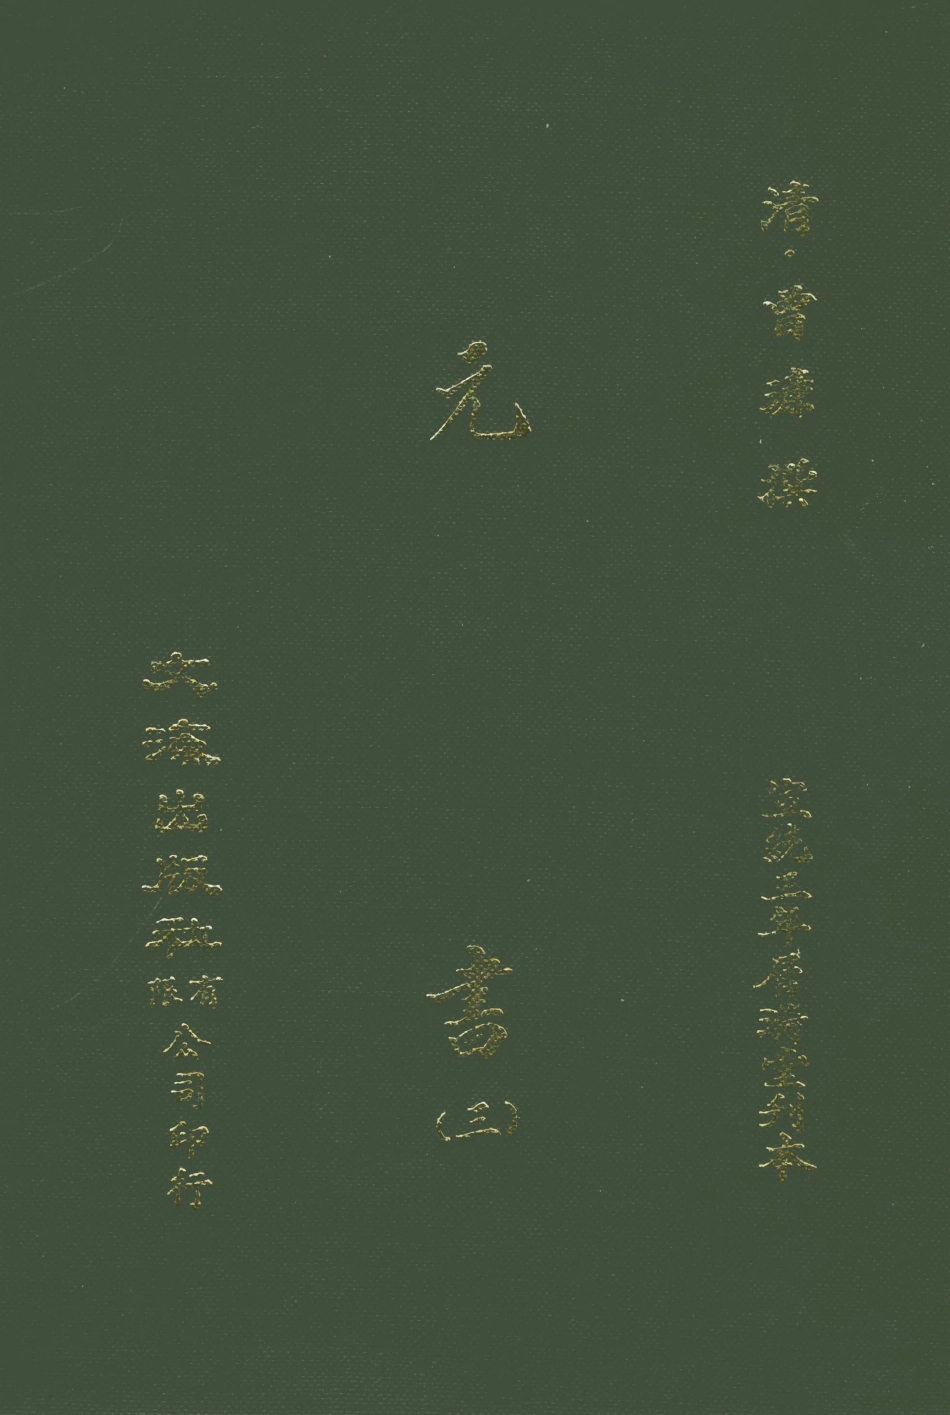 清·曾廉撰
宣統三年層漪堂刊本
元書(三)
文海出版社有限公司印行